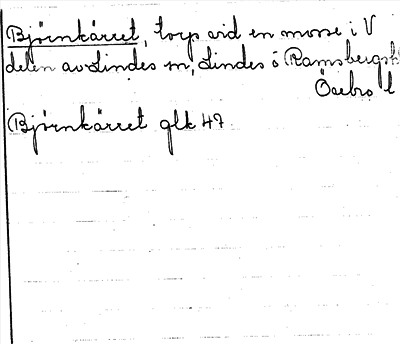 Björnkärret, torp vid en mosse i V
delen av Lindes m, Lindes o Ramsbergsk
Örebro l
Björnkärret glk 47